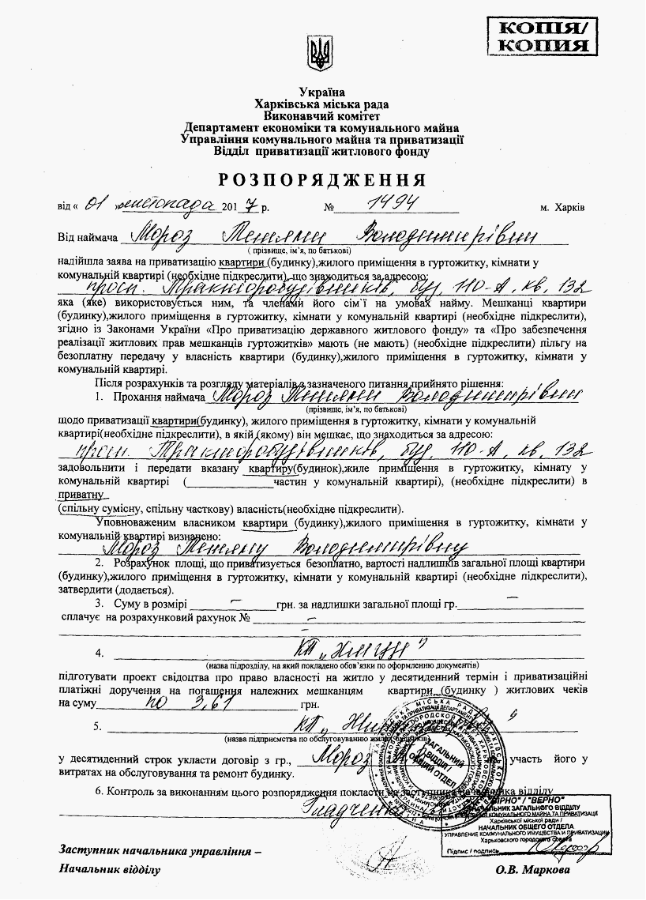 КОПІЯ/
КОПИЯ
Україна
Харківська міська рада
Виконавчий комітет
Департамент економіки та комунального майна
Управління комунального майна та приватизації
Відділ приватизації житлового фонду
РОЗПОРЯДЖЕННЯ
від « 01 »листопада 2017 р. № 1494 м. Харків
Від наймача Мороз Тетяни Володимирівни
( прізвище, ім'я, по батькові)
надійшла заява на приватизацію квартири (будинку),жилого приміщення в гуртожитку, кімнати у
комунальній квартирі (необхідне підкреслити), що знаходиться за адресою:
просп. Тракторобудівників, буд. 110-А, кв. 132
яка (яке) використовується ним, та членами його сім'ї на умовах найму. Мешканці квартири
(будинку),жилого приміщення в гуртожитку, кімнати у комунальній квартирі (необхідне підкреслити),
згідно із Законами України «Про приватизацію державного житлового фонду» та «Про забезпечення
реалізації житлових прав мешканців гуртожитків» мають (не мають) (необхідне підкреслити) пільгу на
безоплатну передачу у власність квартири (будинку),жилого приміщення в гуртожитку, кімнати у
комунальній квартирі.
Після розрахунків та розгляду матеріалів з зазначеного питання прийнято рішення:
1. Прохання наймача Мороз Тетяни Володимирівни
(прізвище, ім'я, по батькові)
щодо приватизації квартири(будинку), жилого приміщення в гуртожитку, кімнати у комунальній
квартирі(необхідне підкреслити), в якій (якому) він мешкає, що знаходиться за адресою:
просп. Тракторобудівників, буд. 110-А, кв. 132
задовольнити і передати вказану квартиру(будинок),жиле приміщення в гуртожитку, кімнату у
комунальній квартирі (____________частин у комунальній квартирі), (необхідне підкреслити) в
приватну
(спільну сумісну, спільну часткову) власність(необхідне підкреслити).
Уповноваженим власником квартири (будинку),жилого приміщення в гуртожитку, кімнати у
комунальній квартирі визначено:
Мороз Тетяну Володимирівну
2. Розрахунок площі, що приватизується безоплатно, вартості надлишків загальної площі квартири
(будинку),жилого приміщення в гуртожитку, кімнати у комунальній квартирі (необхідне підкреслити),
затвердити (додається).
3. Суму в розмірі – грн. за надлишки загальної площі гр. –
сплачує на розрахунковий рахунок № –
4. КП
(назва підрозділу, на який покладено обов'язки по оформленню документів)
підготувати проект свідоцтва про право власності на житло у десятиденний термін і приватизаційні
платіжні доручення на погашення належних мешканцям квартири (будинку ) житлових чеків
на суму по 3,61 грн.
5. КП
(назва підприємства по обслуговуванню
у десятиденний строк укласти договір з гр., Мороз на участь його у
витратах на обслуговування та ремонт будинку.
6. Контроль за виконанням цього розпорядження покласти на заступника начальника відділу
ЗАГАЛЬНИЙ
ВІДДІЛ /
ОБЩИЙ ОТДЕЛ
"ВІРНО" / "ВЕРНО"
НАЧАЛЬНИК ЗАГАЛЬНОГО ВІДДІЛУ
УПРАВЛІННЯ КОМУНАЛЬНОГО МАЙНА ТА ПРИВАТИЗАЦІЇ
Харківської міської ради /
НАЧАЛЬНИК ОБЩЕГО ОТДЕЛА
УПРАВЛЕНИЕ КОММУНАЛЬНОГО ИМУЩЕСТВА И ПРИВАТИЗАЦИИ
Харьковского городского совета
Підпис / подпись
Заступник начальника управління –
Начальник відділу О.В. Маркова